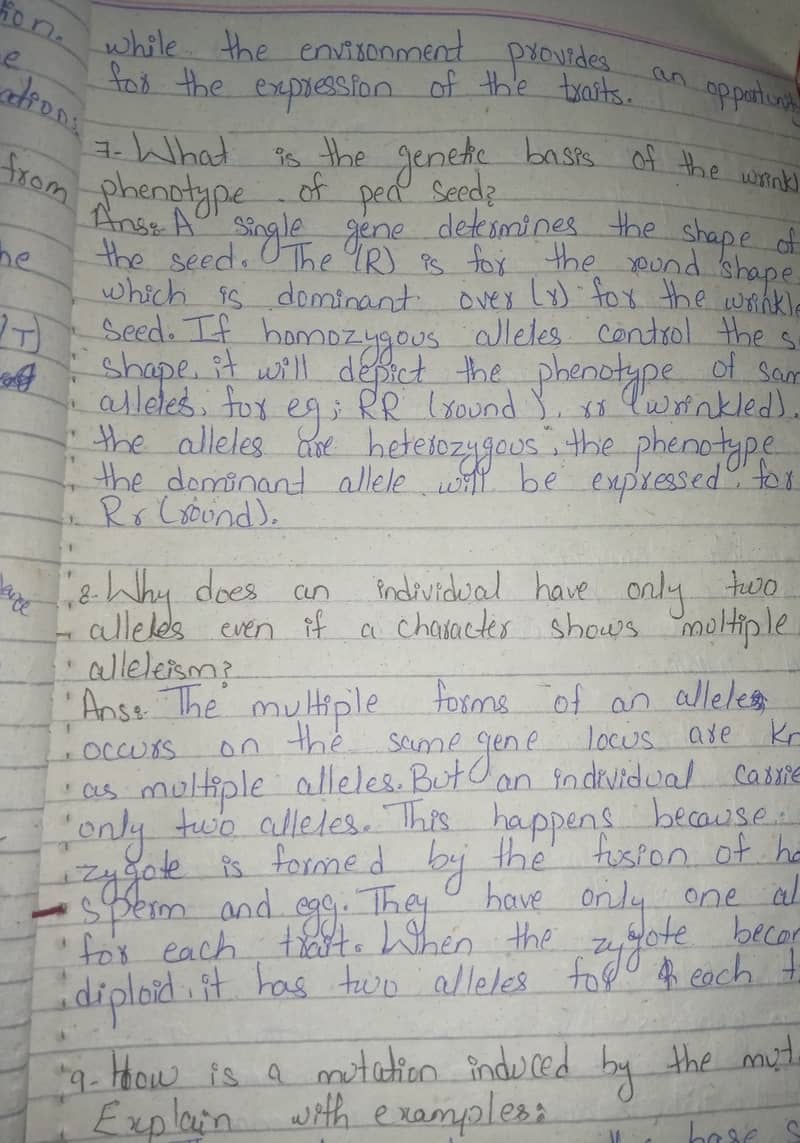 while the environment provides an opportunity
for the expression of the traits.
7- What is the genetic basis of the wrinkl
phenotype of pea seed?
Ans: A single gene determines the shape of
the seed. The (R) is for the round shape
which is dominant over (r) for the wrinkle
seed. If homozygous alleles control the s
shape, it will depict the phenotype of sam
alleles, for eg; RR (round), rr (wrinkled).
the alleles are heterozygous, the phenotype
the dominant allele will be expressed, for
Rr (round).
8- Why does an individual have only two
alleles even if a character shows moltiple
alleleism?
Ans: The multiple forms of an alleles
occurs on the same gene locus are kn
as moltiple alleles. But an individual carrie
only two alleles. This happens because
zygote is formed by the fusion of ha
sperm and egg. They have only one al
for each trait. When the zygote becom
diploid, it has two alleles for each t
9- How is a mutation induced by the mut
Explain with examples:
base s
tion.
e
ations
from
he
(T)